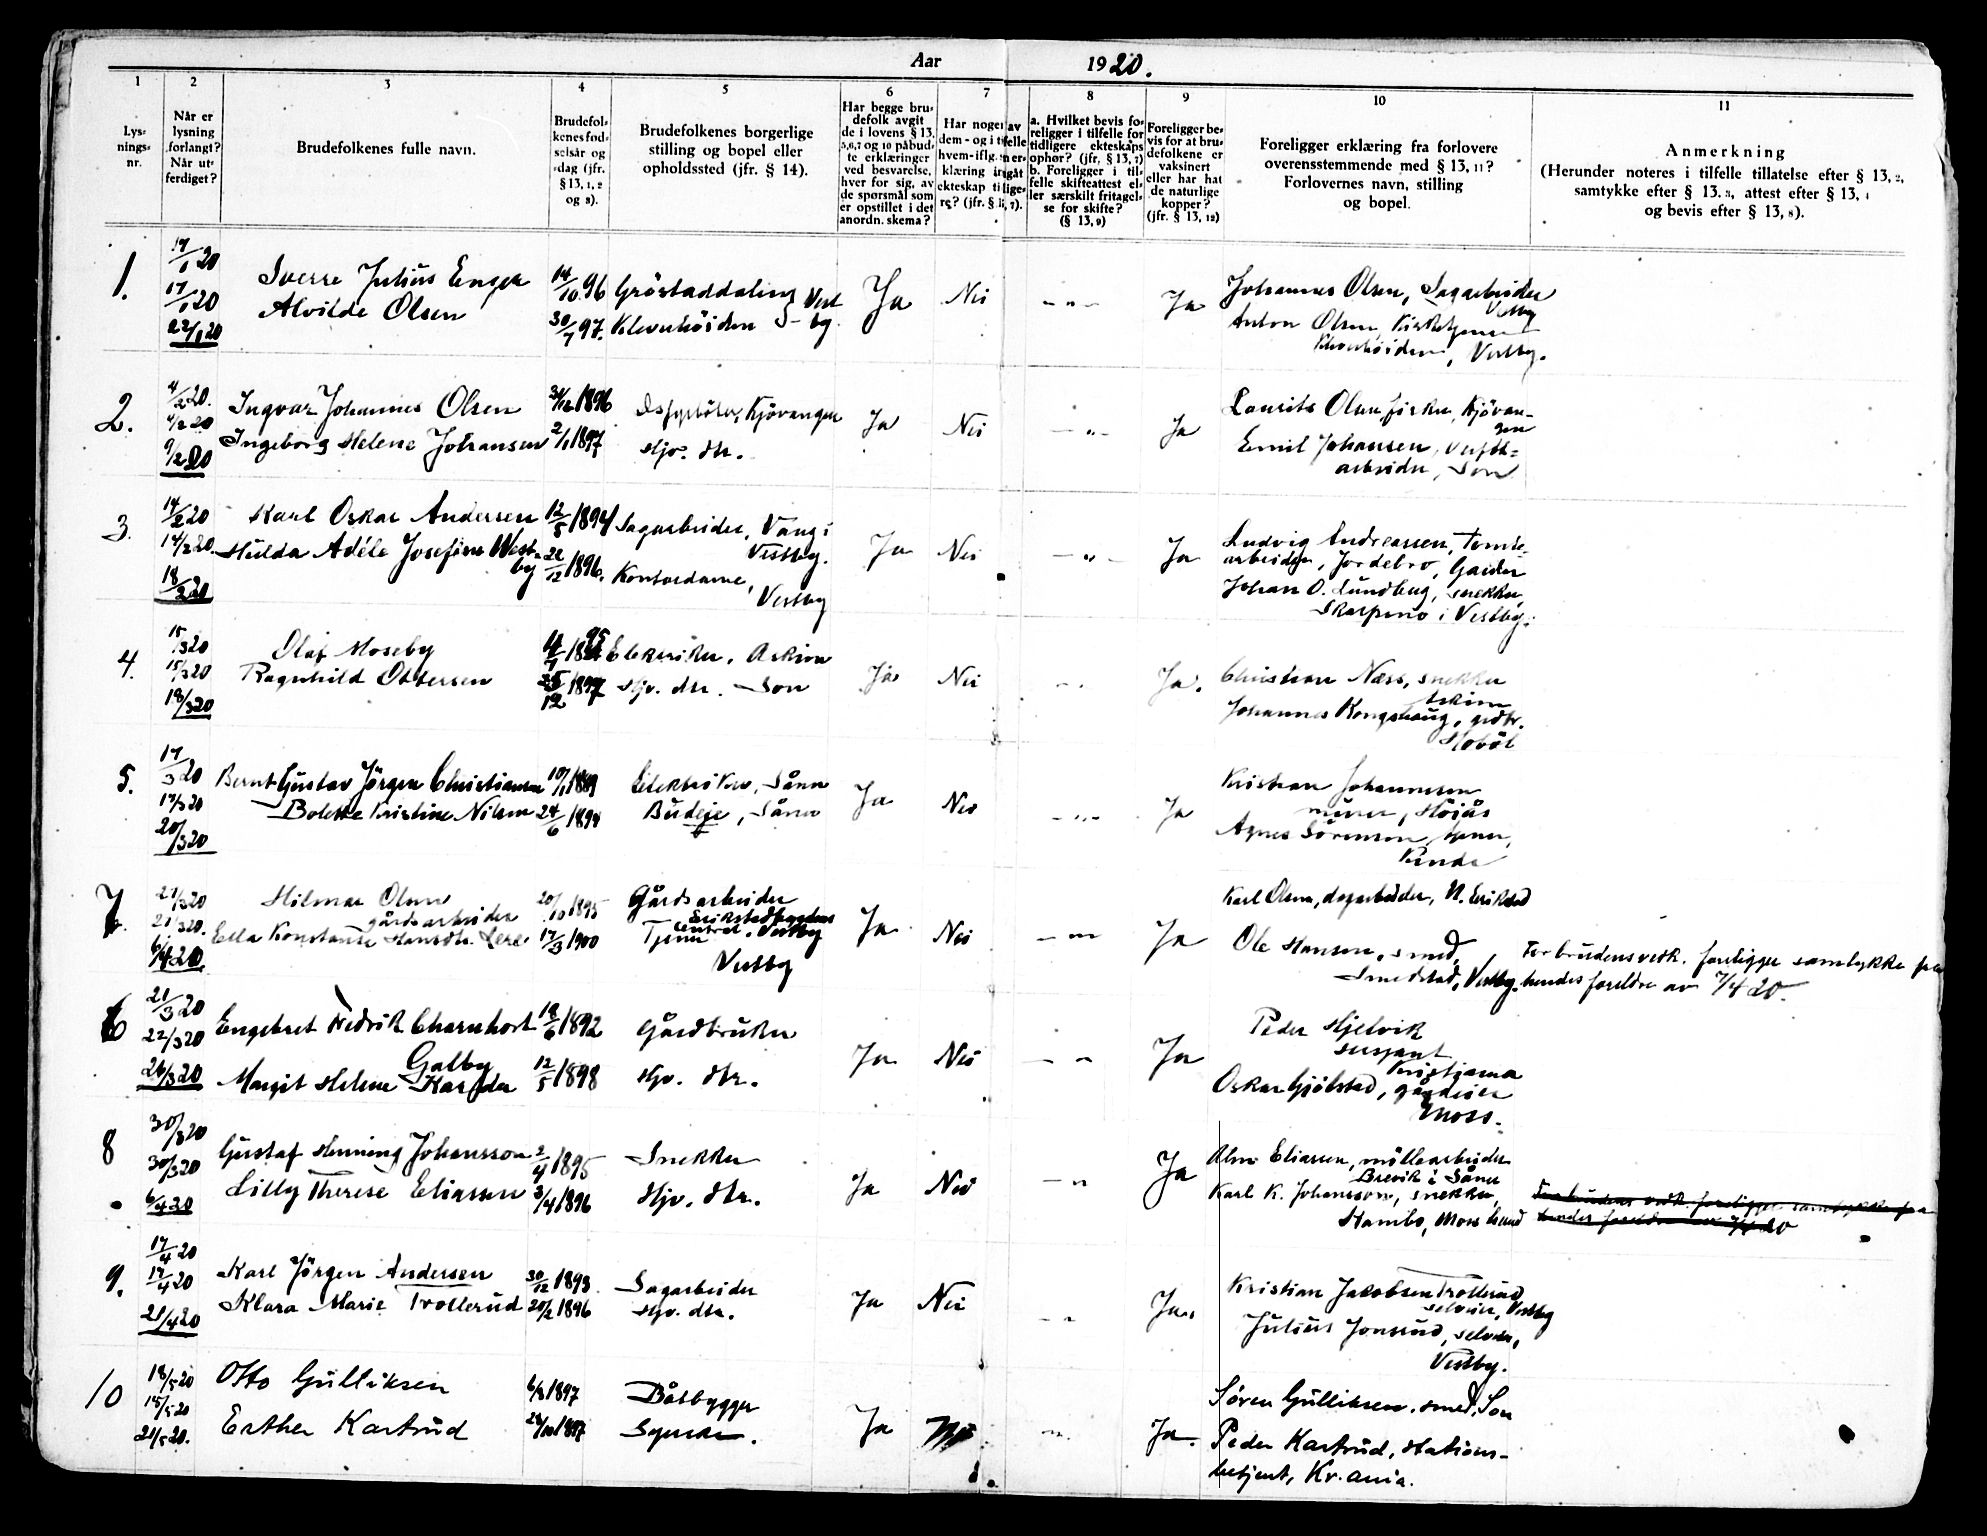 Aar 1920.
1 2 3 4 5 6 7 8 9 10 11
Lys-
nings-
nr.
Når er
lysning
forlangt?
Når ut-
ferdiget?
Brudefolkenes fulle navn.
Brudefol-
kenes fød-
selsår og
-dag (jfr.
§ 13, 1, 2
og 8).
Brudefolkenes borgerlige
stilling og bopel eller
opholdssted (jfr. § 14).
Har begge bru-
defolk avgit
de i lovens § 13,
5,6,7 og 10 påbud-
te erklæringer
ved besvarelse,
hver for sig, av
de spørsmål som
er opstillet i det
anordn. skema?
Har nogen av
dem - og i tilfelle
hvem - iflg. sin er-
klæring inngåt
ekteskap tidlige-
re? (jfr. § 13, 7).
a. Hvilket bevis fo-
religger i tilfelle for
tidligere ekteskaps
ophør? (jfr. § 13, 7)
b. Foreligger i til-
felle skifteattest el-
ler særskilt fritagel-
se for skifte?
(§ 13, 9)
Foreligger be-
vis for at bru-
defolkene er
vaksinert
eller har hat
de naturlige
kopper?
(jfr. § 13, 12)
Foreligger erklæring fra forlovere
overensstemmende med § 13, 11?
Forlovernes navn, stilling
og bopel.
Anmerkning
(Herunder noteres i tilfelle tillatelse efter § 13, 2,
samtykke efter § 13, 3, attest efter § 13, 4
og bevis efter § 13, 8).
1. 17/1 20
17/1 20
22/1 20
Sverre Julius Enger 14/10 96 Gröstaddaling Vest
Alvilde Olsen 30/7 97. Klevenhöiden by.
Ja Nei - " - Ja
Johannes Olsen, Sagarbeider
Vestby
Anton Olsen,
Klevenhöiden, Vestby.
2. 4/2 20.
4/2 20
9/2 20
Ingvar Johannes Olsen 31/12 1896 Kjövangen
Ingeborg Helene Johansen 2/1 1897 Hjv. dtr.
Ja Nei - " - Ja
Laurits Olsen, fisker, Kjövan-
gen
Emil Johansen, verfts-
arbeider, Son
3. 14/2 20
14/2 20.
18/2 20
Karl Oskar Andersen 12/5 1894 Sagarbeider, Vang i
Vestby.
Hulda Adéle Josefine West-
by 22/12 1896. Kontordame,
Vestby
Ja Nei - " - Ja
Ludvig Andreassen, Tomte-
arbeider, Jordebro, Garder
Johan O. Lundbug, snekker,
i Vestby.
4. 15/3 20
15/3 20
18/3 20
Olaf Moseby 4/7 1895 Elektriker, Askim
Ragnhild Ottersen 25/12 1897 Hjv. dtr. Son
Ja Nei - " - Ja.
Christian Næss, snekker
Askim
Johannes Kongshaug, grdbr.
Hobøl
5. 17/3 20
17/3 20
20/3 20
Bernt Gustav Jörgen Christiansen 10/1 1889 Elektriker, Såner
Bolette Kristine Nilsen 24/6 1894 Budeje, Såner
Ja Nei - " - Ja
Kristian Johannesen
murer, Höjås
Agnes Sörensen,
7. 21/3 20
21/3 20.
6/4 20
Hilmar Olsen 20/10 1895 Gårdsarbeider
gårdsarbeider
Ella Konstanse Hansdtr. 17/3 1900 Tjener
Vestby
Vestby
Ja Nei - " - Ja
Karl Olsen, dagarbeider, N. Erikstad
Ole Hansen, smed,
Smedstad, Vestby.
For brudens vedk. foreligger samtykke fra
hendes foreldre av 7/4 20.
6 21/3 20
22/3 20
26/3 20
Engebret Fredrik Charnhort 18/6 1892 Gårdbruker
Galby
Margit Helene 12/5 1898 Hjv. dtr.
Ja Nei - " Ja
Peder Hjelvik
sersjant
Kristiania
Oskar Gjölstad, gårdeier
Moss.
8 30/3 20
30/3 20
6/4 20
Gustaf Henning Johansson 2/4 1895 Snekker
Lilly Therese Eliassen 3/4 1896 Hjv. dtr.
Ja Nei - " Ja
Alm Eliassen, möllearbeider
Brevik i Såner
Karl K. Johansson, snekker,
Hambo, Moss
For brudens vedk. foreligger samtykke fra
hendes foreldre av 7/4 20
9. 17/4 20
17/4 20
21/4 20
Karl Jörgen Andersen 30/12 1893 Sagarbeider
Klara Marie Trollerud 20/2 1896 Hjv. dtr.
Ja Nei - " Ja.
Kristian Jakobsen Trollerud
selveier, Vestby
Julius Jonsrud, selveier,
Vestby.
10 18/5 20
18/5 20
21/5 20.
Otto Gulliksen 6/3 1897 Båtbygger
Esther Kastrud 24/10 1897 Syerske.
Ja Nei - " Ja.
Søren Gulliksen, smed, Son
Peder Kastrud, stations-
betjent, Kr.ania.